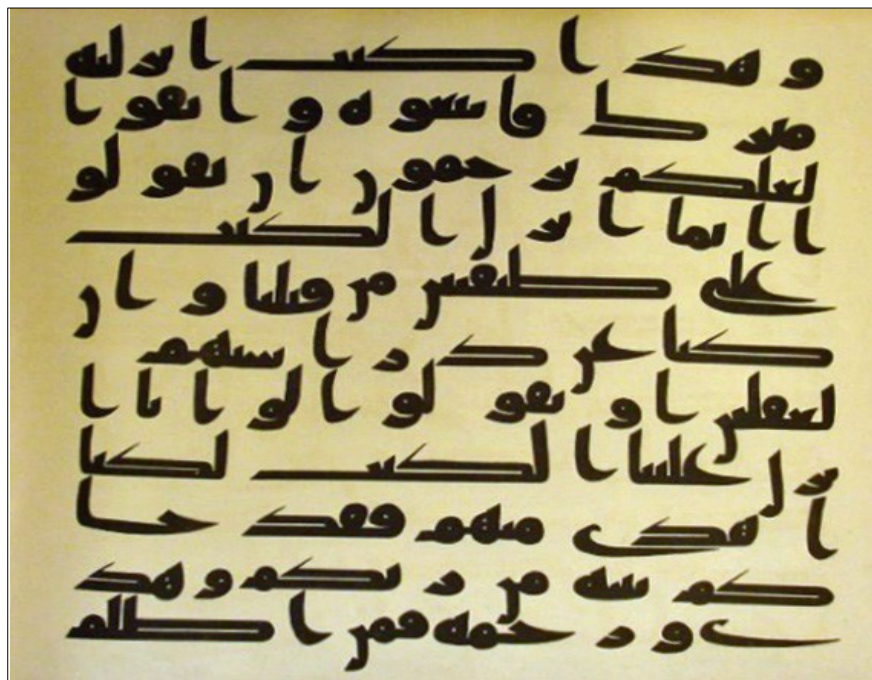 وهذا كتب انزلنه
مبرك فاتبعوه واتقوا
لعلكم ترحمون ان تقولو
ا انما انزل الكتب
على طئفتين من قبلنا وان
كنا عن دراستهم
لغفلين او تقولوا لو انا ا
نزل علينا الكتب لكنا
اهدى منهم فقد جا
كم بينه من ربكم وهد
ى ورحمه فمن اظلم